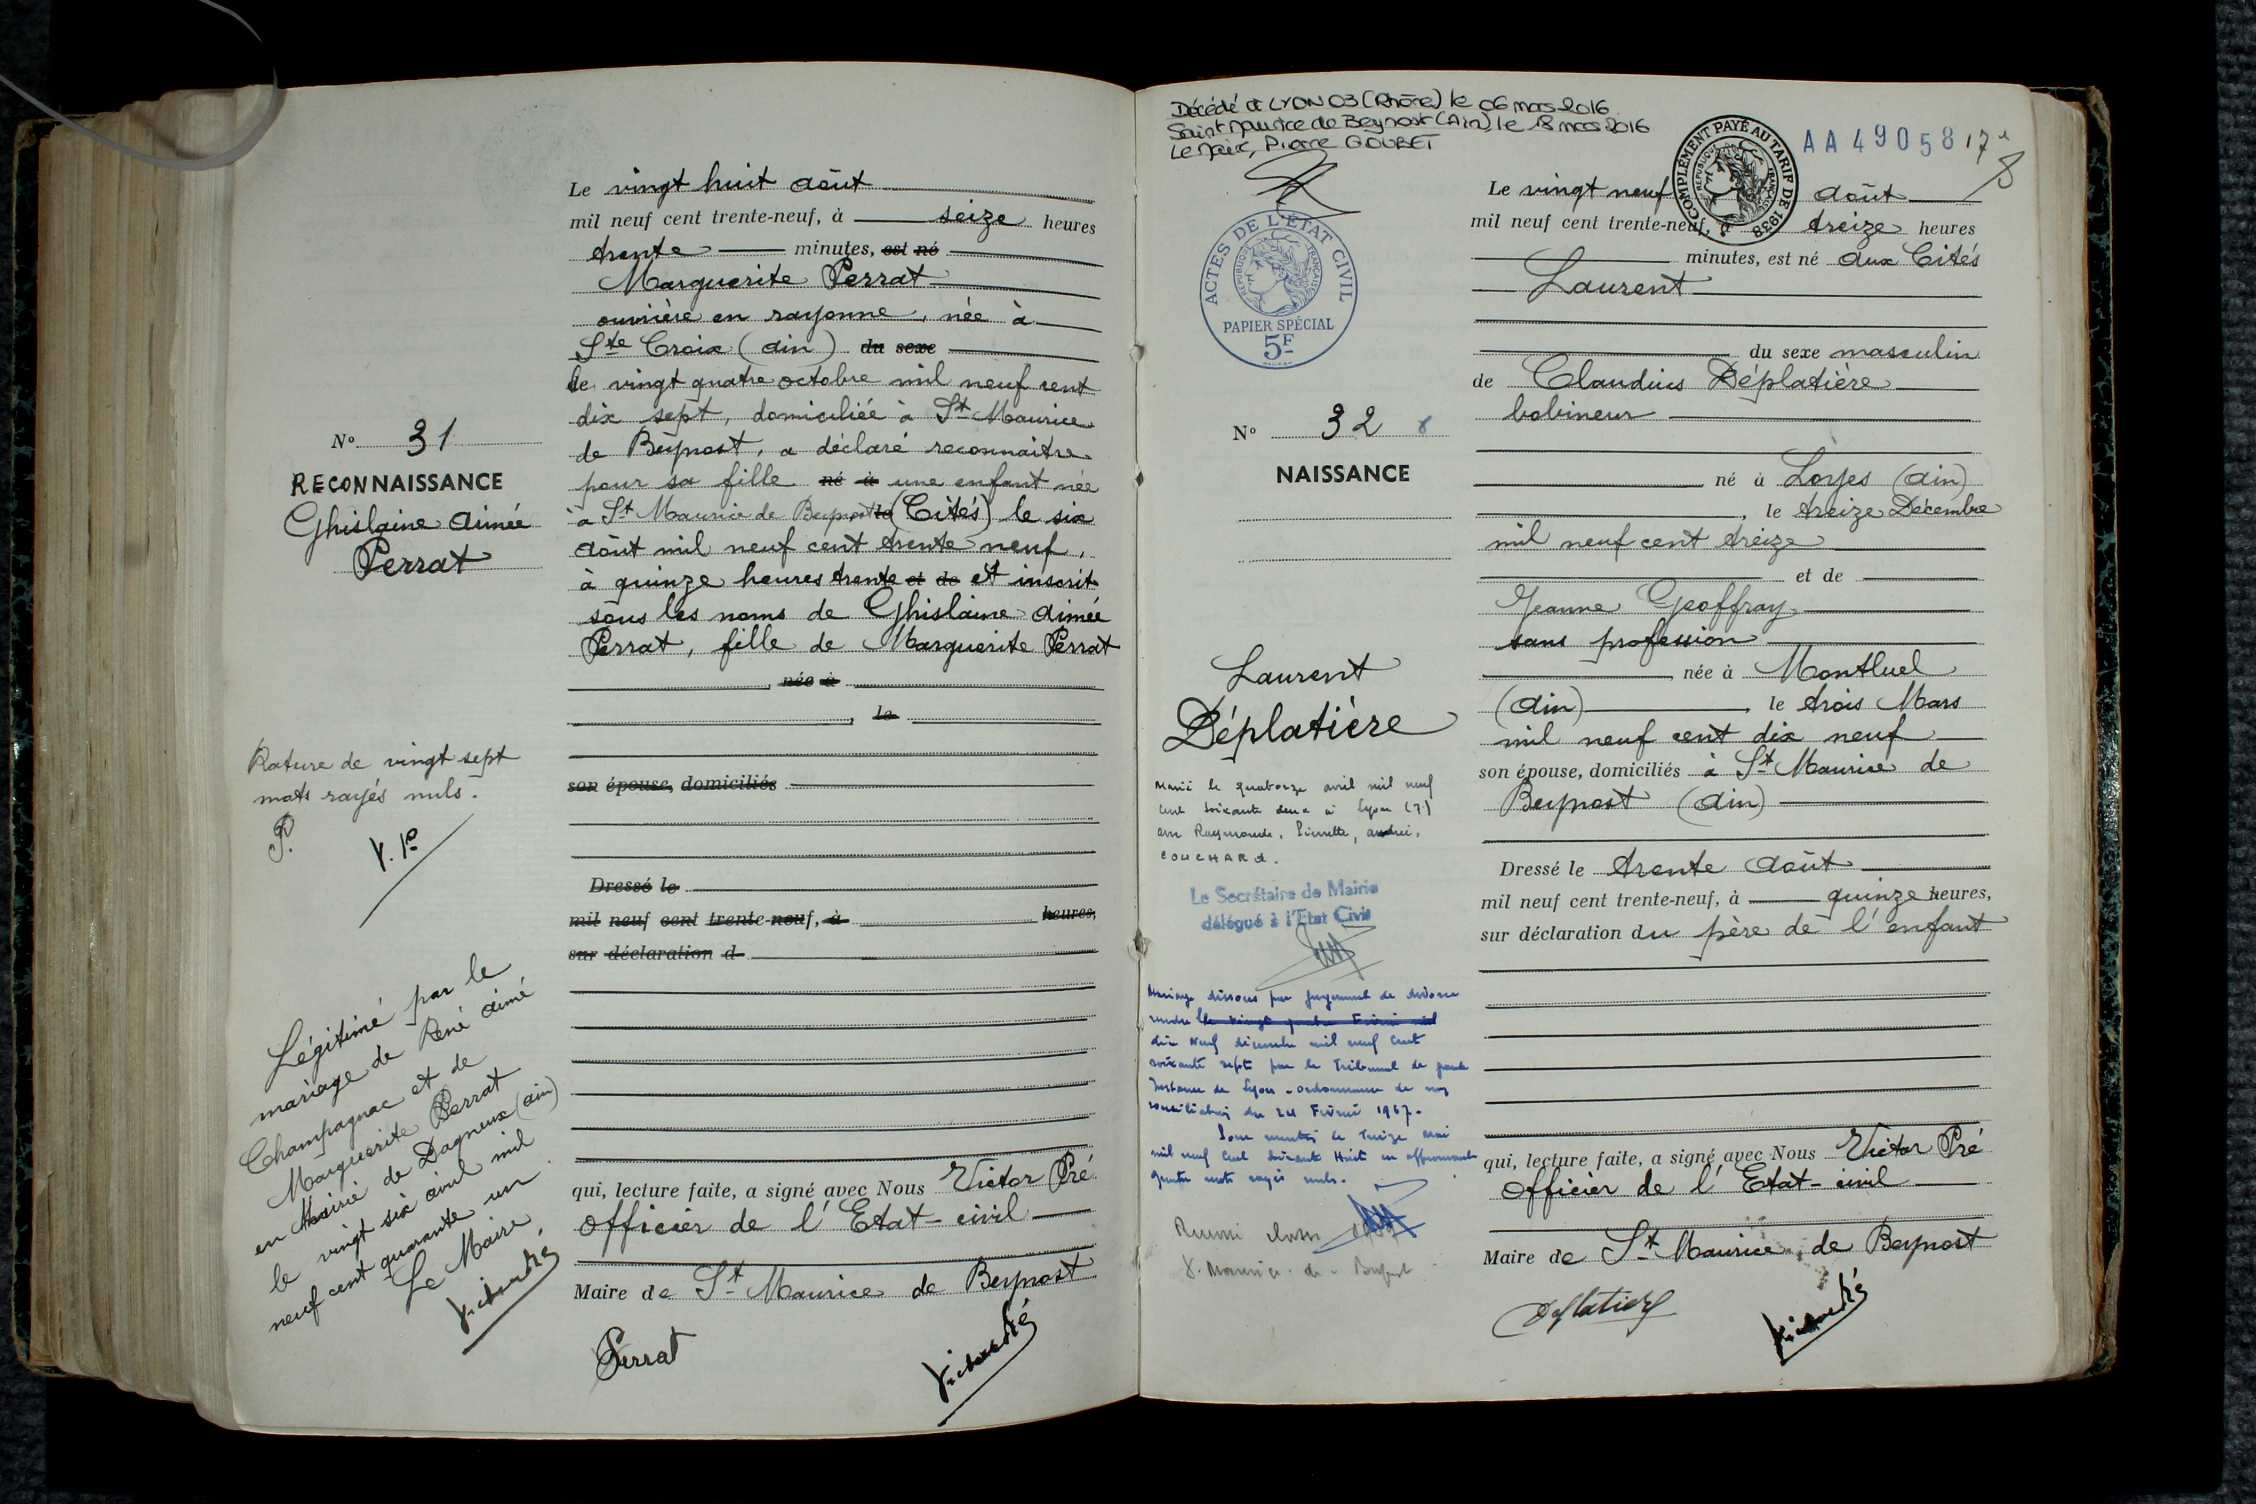 N° 31
RECONNAISSANCE
Ghislaine Aimée
Perrat
Rature de vingt sept
mots rayés nuls.
P.
V. P.
Légitimé par le
mariage de René Aimé
Champagnac et de
Marguerite Perrat
en Mairie de Dagneux (Ain)
le vingt six avril mil
neuf cent quarante un.
Le Maire,
Victor Pré
Le vingt huit Août
mil neuf cent trente-neuf, à seize heures
trente minutes, est né
Marguerite Perrat
ouvrière en rayonne, née à
Ste Croix (Ain) du sexe
le vingt quatre octobre mil neuf cent
dix sept, domiciliée à St Maurice
de Beynost, a déclaré reconnaitre
pour sa fille né à une enfant née
à St Maurice de Beynost le (Cités) le six
Août mil neuf cent trente neuf,
à quinze heures trente et de et inscrit
sous les noms de Ghislaine Aimée
Perrat, fille de Marguerite Perrat
, née à
, le
son épouse, domiciliés
Dressé le
mil neuf cent trente-neuf, à heures,
sur déclaration d
qui, lecture faite, a signé avec Nous Victor Pré
Officier de l'Etat-civil
Maire de St Maurice de Beynost
Perrat
Victor Pré
Décédé à LYON 03 (Rhône) le 06 mars 2016
Saint Maurice de Beynost (Ain), le 18 mars 2016
Le Maire, Pierre GOUBET
ACTES DE L'ÉTAT CIVIL
RÉPUBLIQUE FRANÇAISE
PAPIER SPÉCIAL
5F
COMPLÉMENT PAYÉ AU TARIF DE 1938
RÉPUBLIQUE FRANÇAISE
AA 49058
17e
N° 32
NAISSANCE
Laurent
Déplatière
Marié le quatorze avril mil neuf
cent soixante deux à Lyon (7)
avec Raymonde, Pierrette, Andrée,
COUCHARD.
Le Secrétaire de Mairie
délégué à l'Etat Civil
Mariage dissous par jugement de divorce
rendu le vingt quatre Février mil
dix neuf décembre mil neuf cent
soixante sept par le Tribunal de grande
Instance de Lyon - ordonnance de non
conciliation du 24 Février 1967.
mil neuf cent soixante Huit en approuvant
quatre mots rayés nuls.
St Maurice de Beynost
Le vingt neuf Août
mil neuf cent trente-neuf, à treize heures
minutes, est né aux Cités
Laurent
du sexe masculin
de Claudius Déplatière
bobineur
né à Loyes (Ain)
, le treize Décembre
mil neuf cent treize
et de
Jeanne Geoffray
sans profession
née à Montluel
(Ain) , le trois Mars
mil neuf cent dix neuf
son épouse, domiciliés à St Maurice de
Beynost (Ain)
Dressé le trente Août
mil neuf cent trente-neuf, à quinze heures,
sur déclaration du père de l'enfant
qui, lecture faite, a signé avec Nous Victor Pré
Officier de l'Etat-civil
Maire de St Maurice de Beynost
Déplatière
Victor Pré